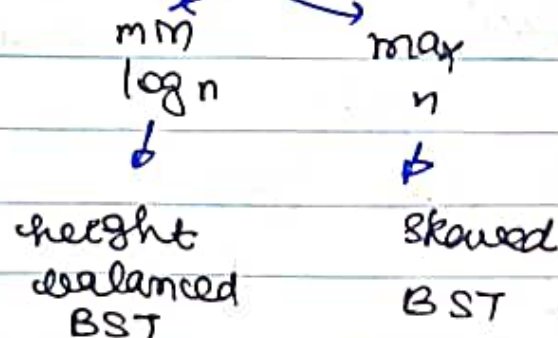 min
log n
height
balanced
BST
max
n
Skewed
BST